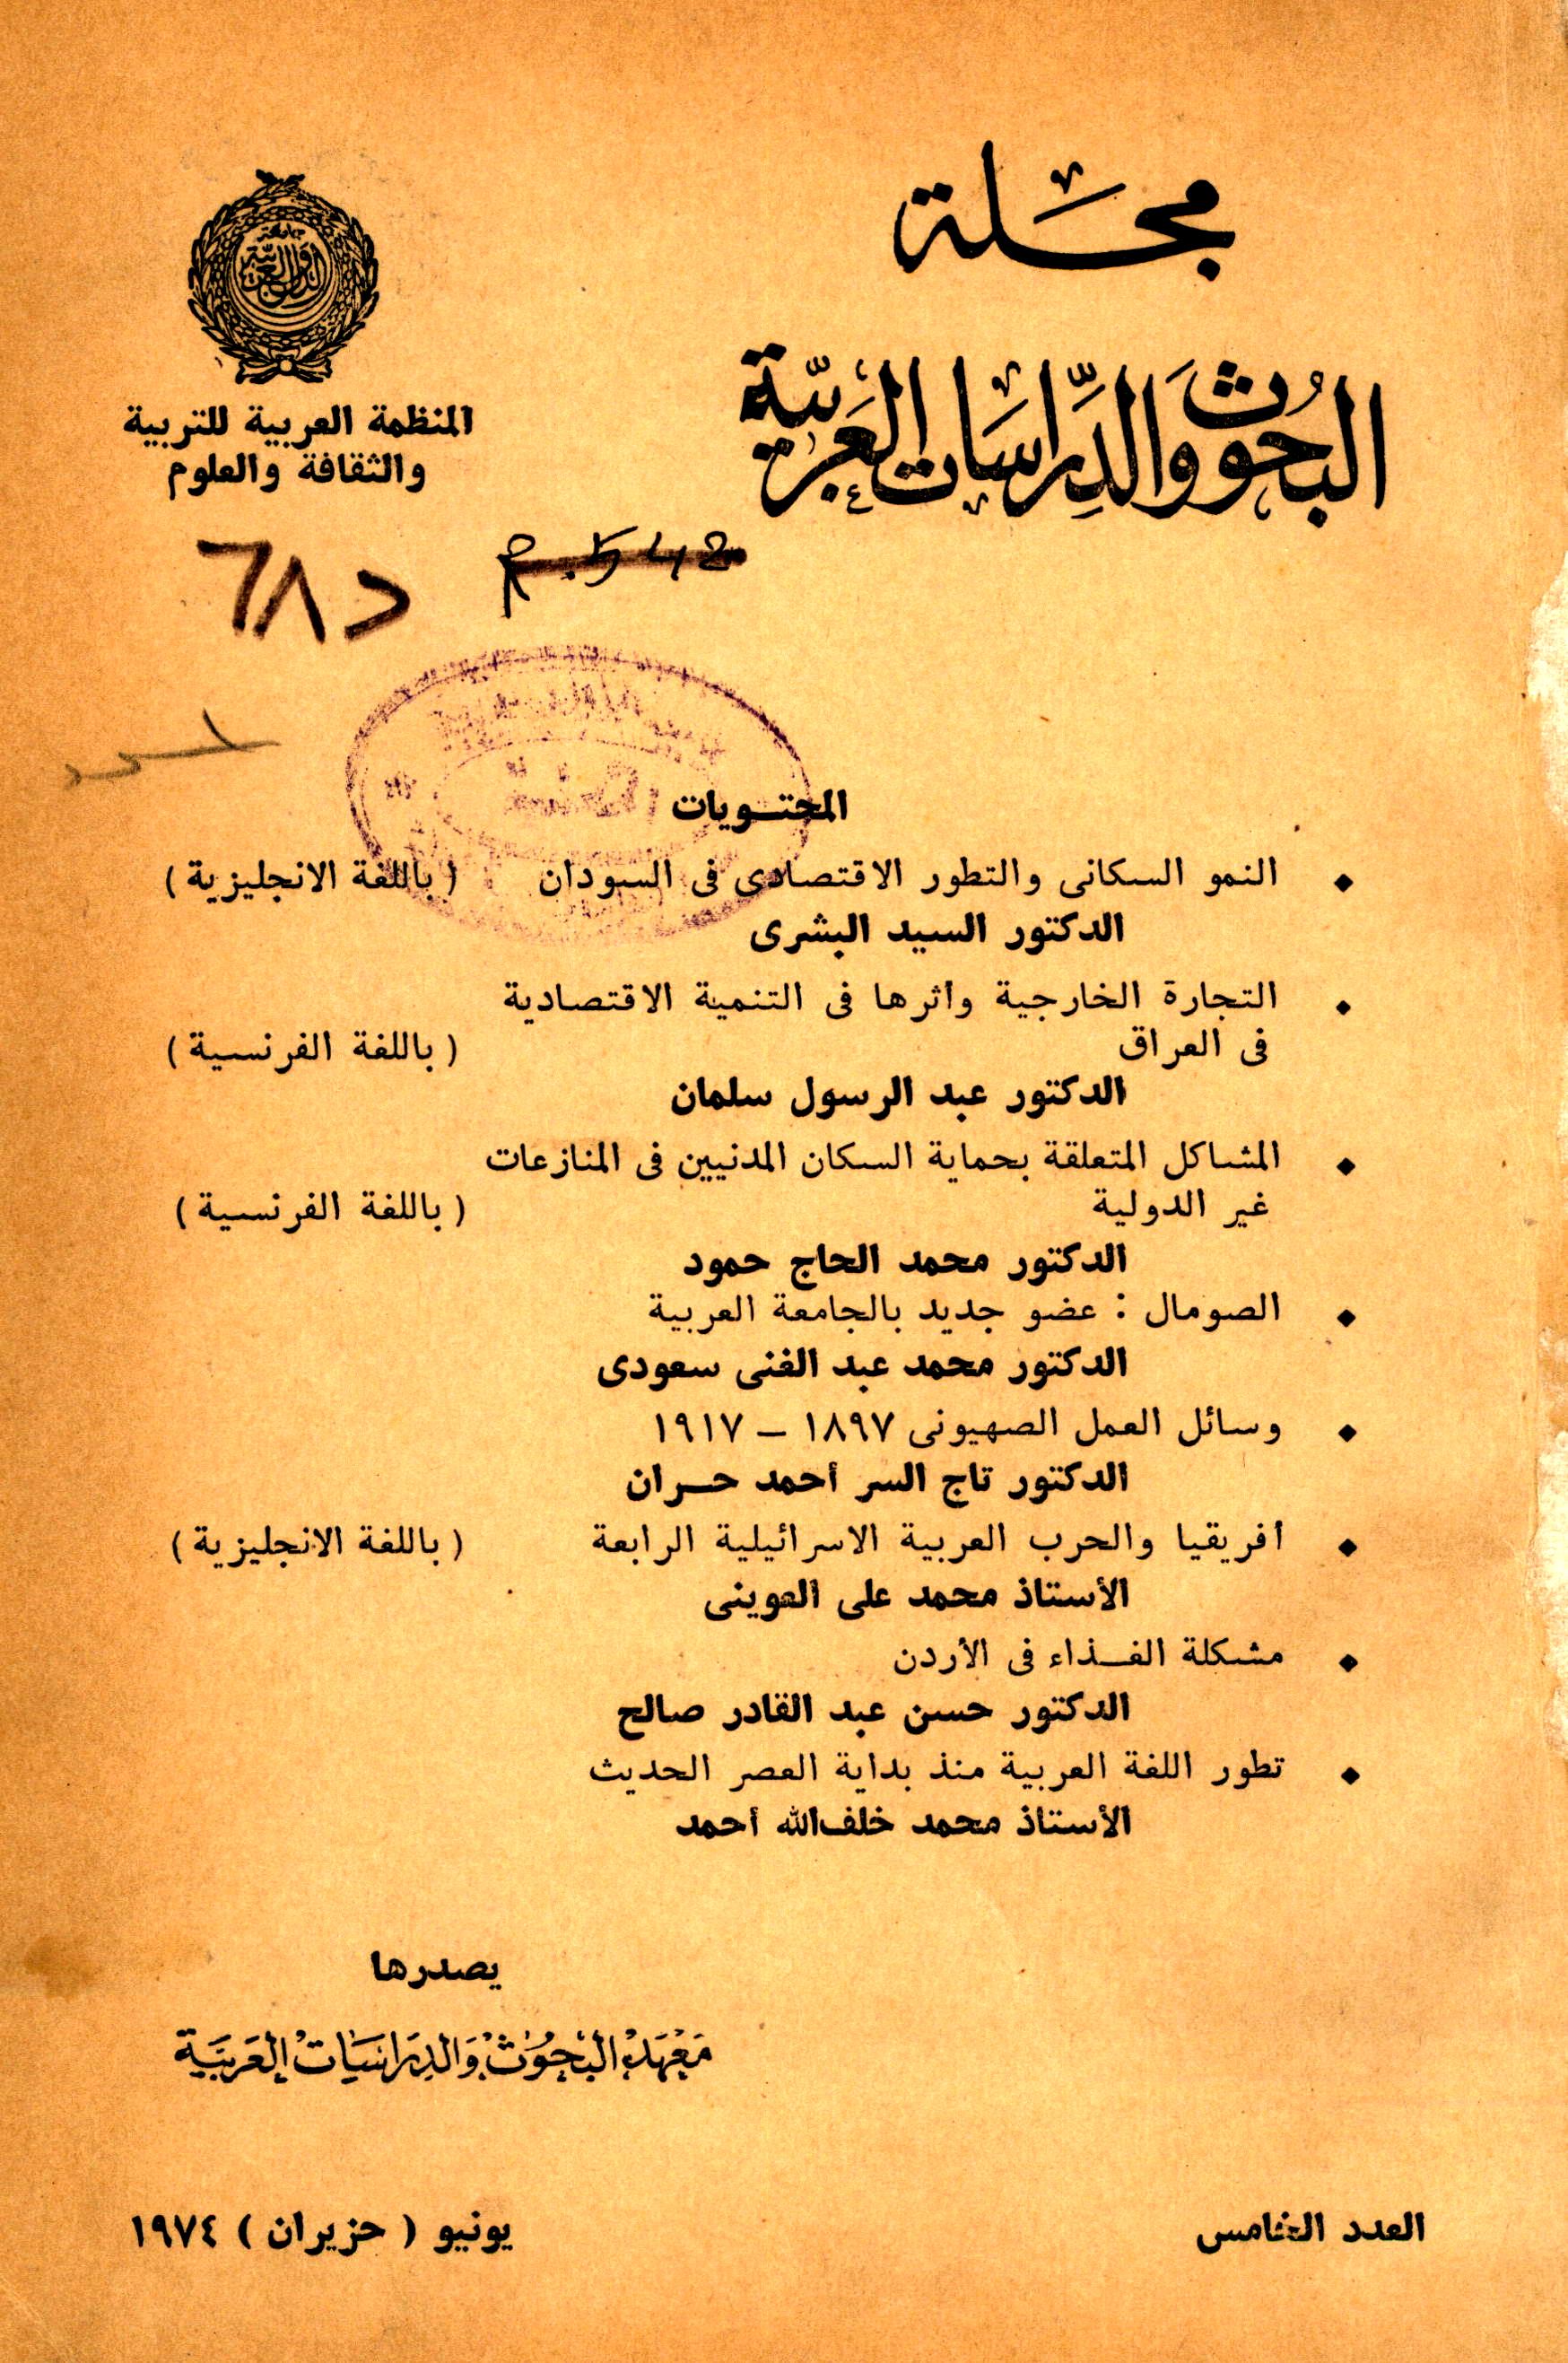 مجلة
البحوث والدراسات العربية
جامعة
الدول العربية
المنظمة العربية للتربية
والثقافة والعلوم
د ٦٨
المحتويات
النمو السكانى والتطور الاقتصادى فى السودان ( باللغة الانجليزية )
الدكتور السيد البشرى
التجارة الخارجية وأثرها فى التنمية الاقتصادية
فى العراق ( باللغة الفرنسية )
الدكتور عبد الرسول سلمان
المشاكل المتعلقة بحماية السكان المدنيين فى المنازعات
غير الدولية ( باللغة الفرنسية )
الدكتور محمد الحاج حمود
الصومال : عضو جديد بالجامعة العربية
الدكتور محمد عبد الغنى سعودى
وسائل العمل الصهيونى ١٨٩٧ – ١٩١٧
الدكتور تاج السر أحمد حران
أفريقيا والحرب العربية الاسرائيلية الرابعة ( باللغة الانجليزية )
الأستاذ محمد على العوينى
مشكلة الغذاء فى الأردن
الدكتور حسن عبد القادر صالح
تطور اللغة العربية منذ بداية العصر الحديث
الأستاذ محمد خلف الله أحمد
يصدرها
معهد البحوث والدراسات العربية
العدد الخامس
يونيو ( حزيران ) ١٩٧٤